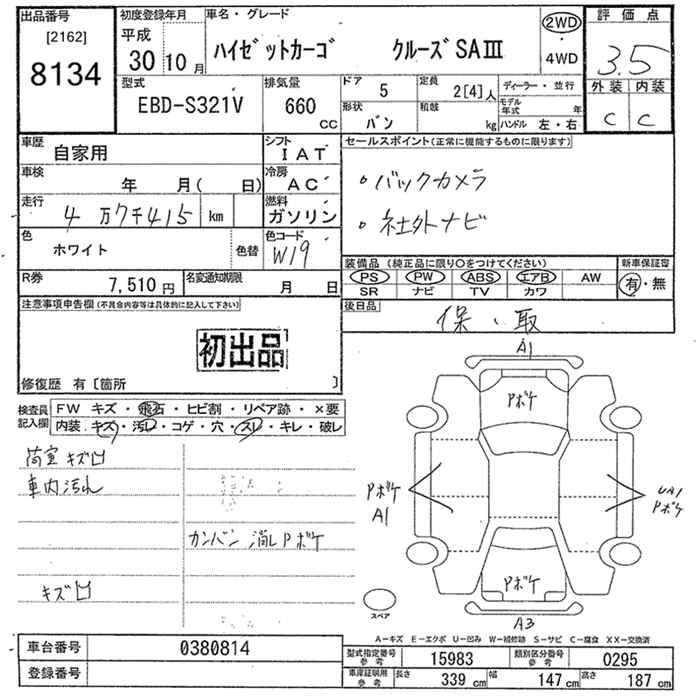 出品番号
[2162]
8134
初度登録年月
平成
30 10 月
車名・グレード
ハイゼットカーゴ クルーズSAⅢ
2WD
・
4WD
評価点
3.5
外装 内装
C C
型式
EBD-S321V
排気量
660
CC
ドア
5
定員
2[4]人
ディーラー・並行
形状
バン
積載
kg
モデル年式 年
ハンドル 左・右
車歴
自家用
シフト
IAT
車検
年 月( 日)
冷房
AC
走行
4万7千415 km
燃料
ガソリン
色
ホワイト
色替
色コード
W19
R券
7,510円
名変通知期限
月 日
セールスポイント(正常に機能するものに限ります)
・バックカメラ
・社外ナビ
装備品(純正品に限り○をつけてください)
PS PW ABS エアB AW
SR ナビ TV カワ
新車保証書
有・無
後日品
保、取
注意事項申告欄(不具合内容等は具体的に記入して下さい)
初出品
修復歴 有〔箇所 〕
検査員
記入欄
FW キズ・飛石・ヒビ割・リペア跡・×要
内装.キズ・汚レ・コゲ・穴・スレ・キレ・破レ
荷室キズ凹
車内汚れ
カンバン消しPボケ
キズ凹
A1
Pボケ
Pボケ
A1
UA1
Pボケ
Pボケ
A3
スペア
A－キズ E－エクボ U－凹み W－補修跡 S－サビ C－腐食 XX－交換済
車台番号
0380814
登録番号
型式指定番号
参考
15983
類別区分番号
参考
0295
車庫証明用
参考
長さ
339 cm
幅
147 cm
高さ
187 cm